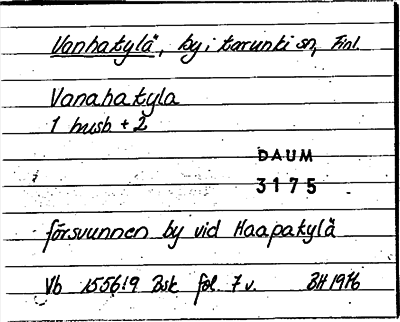 Vanhakylä, by i Karunki sn, Finl.
Vanahakyla
1 husb + 2
DAUM
3175
försvunnen by vid Haapakylä
Vb 1556:9 Bsk fol. 7 v. BH 1976